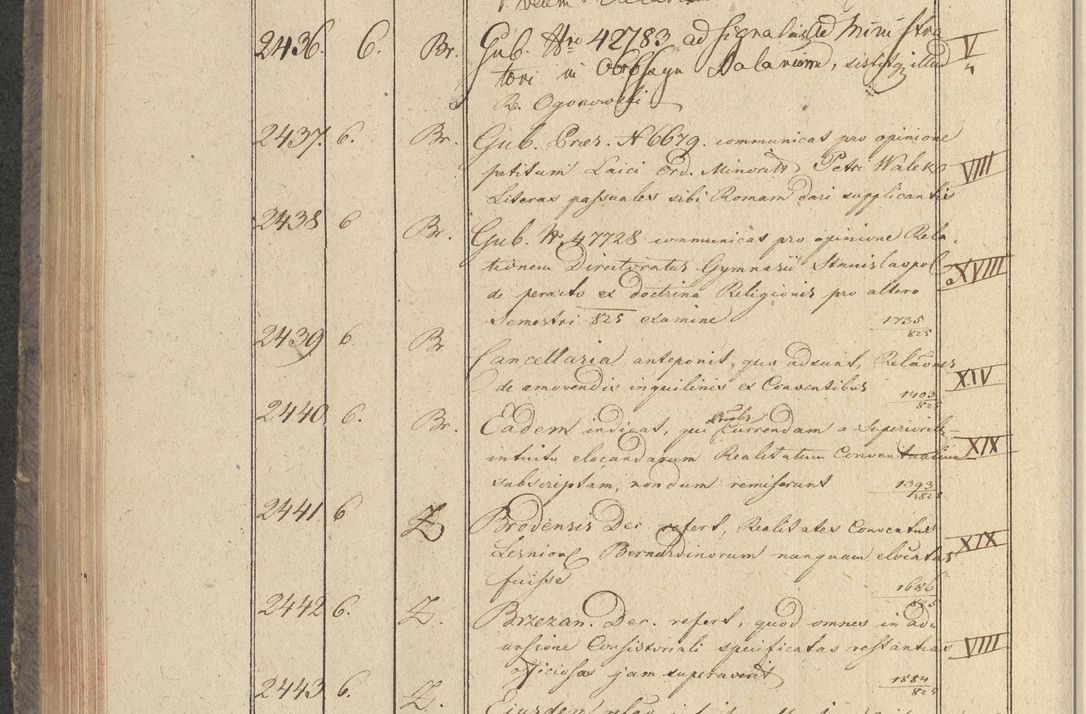 2436. 6. Br. Gub. Nro 42783 ad signalaisse Ministra V/4
tori in Salarium, sistit illud
R. Ogonowski
2437. 6. Br. Gub. Præs. N 6679. communicat pro opinione
petitum Laici Ord. Minorit. Petri Walek VIII
Literas passuales sibi Romam dari supplicantis
2438 6 Br. Gub. Nr. 47728 communicat pro opinione Rela-
tionem Directoratus Gymnasii Stanislaopol XVIII
de peracto ex doctrina Religionis pro altero
Semestri 825 examine 1735/825
2439 6 Br Cancellaria anteponit, quæ adsunt, Relaones
de amovendis inquilinis ex Conventibus XIV
1403/825
2440 6. Br. Eadem indicat, qui Currendam a Superiorit-
intuitu elocandarum Realitatum Conventualium XIX
subscriptam, nondum remiserunt 1393/825
2441 6 Z Brodensis Dec. refert, Realitates Conventus
Lesniov Bernardinorum nunquam elocatas XIX
fuisse 1686/825
2442 6. Z. Brzezan. Dec. refert, quod omnes in ad-
unsione Consistoriali specificatas restantias VIII
officiosas jam superavit 1884/825
2443 6. Z. Ejusdem